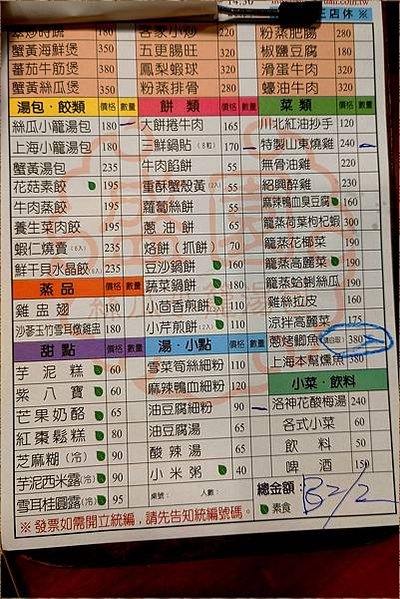 14:30
王店休※
翠炒時蔬 180 客家小炒 220 粉蒸肥腸 280
蟹黃海鮮煲 350 五更腸旺 320 椒鹽豆腐 180
蕃茄牛筋煲 380 鳳梨蝦球 320 滑蛋牛肉 320
蟹黃絲瓜煲 350 粉蒸排骨 280 蠔油牛肉 320
湯包・餃類 價格 數量 餅類 價格 數量 菜類 價格 數量
絲瓜小籠湯包 180 大餅捲牛肉 165 川北紅油抄手 120
上海小籠湯包 180 三鮮鍋貼(8粒) 170 特製山東燒雞 240
蟹黃湯包 235 牛肉餡餅 55 無骨油雞 220
花菇素餃 195 重酥蟹殼黃(2入) 55 紹興醉雞 230
牛肉蒸餃 195 蘿蔔絲餅 55 麻辣鴨血臭豆腐 160
養生菜肉餃 195 蔥油餅 60 龍蒸荷葉枸杞蝦 300
蝦仁燒賣(6入) 235 烙餅(抓餅) 70 龍蒸花椰菜 190
鮮干貝水晶餃(6入) 235 豆沙鍋餅 160 龍蒸高麗菜 190
蒸品 價格 數量 蔬菜鍋餅 180 龍蒸蛤蜊絲瓜 190
雞盅翅 180 小茴香煎餅 110 雞絲拉皮 160
沙蔘玉竹雪耳燉雞盅 180 小芹煎餅(2入) 110 涼拌高麗菜 175
甜點 價格 數量 湯・小點 價格 數量 蔥烤鯽魚 380
芋泥糕 60 雪菜筍絲細粉 110 上海本幫燻魚 380
紫八寶 60 麻辣鴨血細粉 120 小菜・飲料
芒果奶酪 65 油豆腐細粉 90 洛神花酸梅湯 240
紅棗鬆糕 80 油豆腐湯 65 各式小菜 60
芝麻糊(冷) 90 酸辣湯 65 飲料 50
芋泥西米露(冷) 90 小米粥 40 啤酒 150
雪耳桂圓露(冷) 95 桌號: 人數: 總金額 B2/2
素食
※發票如需開立統編，請先告知統編號碼。